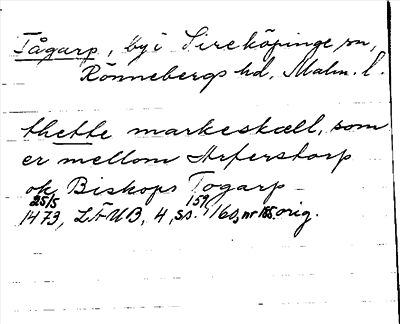 Tågarp, by i Sireköpinge sn,
Rönnebergs hd, Malm. l.
thette markeskæll, som
er mellom Arferstorp
ok Biskops Togarp
25/5 1473, LÄUB, 4, ss. 159, 160, nr 185. orig.